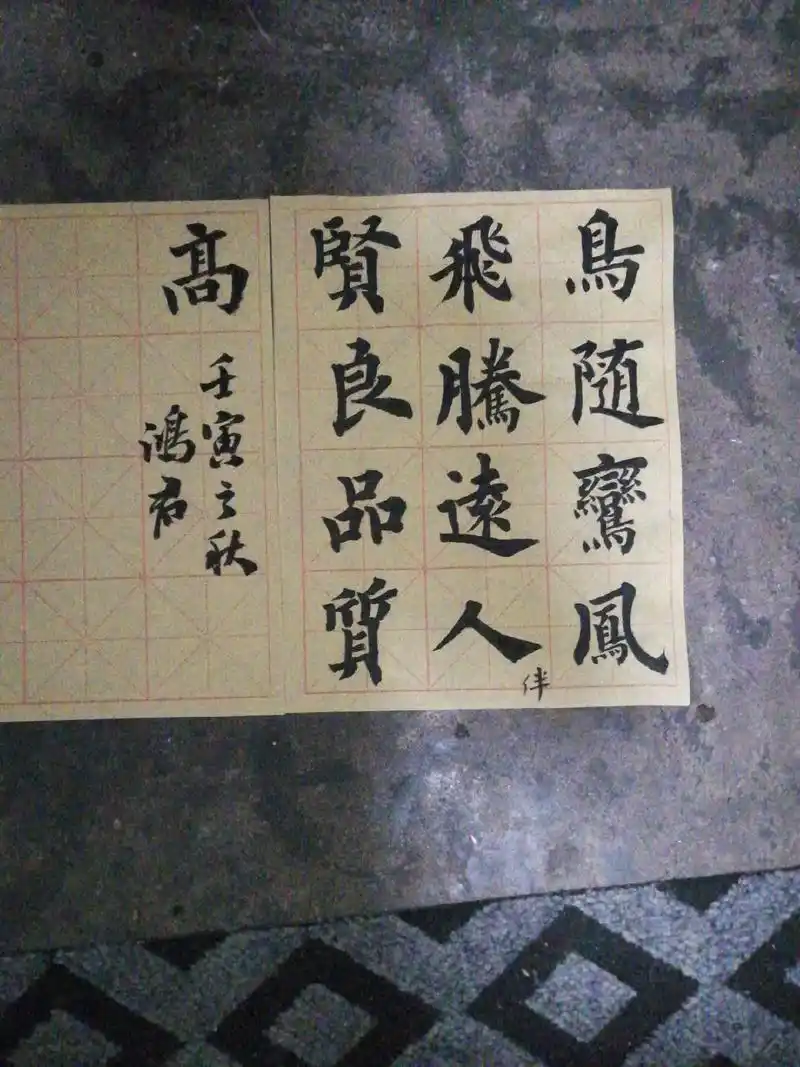 鳥随鸞鳳
飛騰遠人
伴
賢良品質
高
壬寅之秋
鴻君